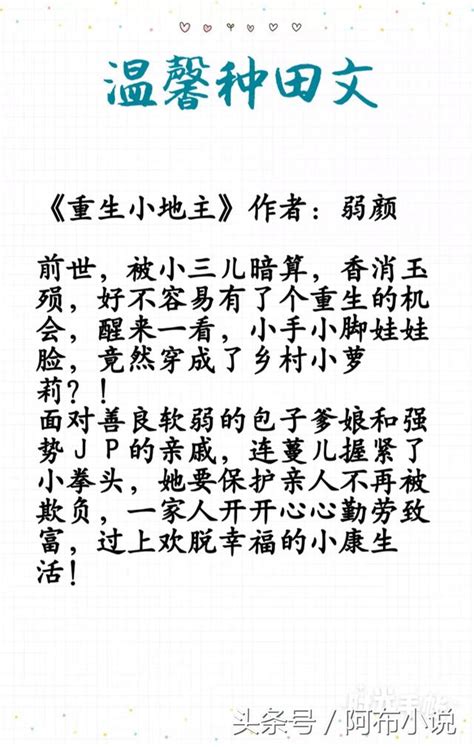 温馨种田文
《重生小地主》作者：弱颜
前世，被小三儿暗算，香消玉
殒，好不容易有了个重生的机
会，醒来一看，小手小脚娃娃
脸，竟然穿成了乡村小萝
莉？！
面对善良软弱的包子爹娘和强
势JP的亲戚，连蔓儿握紧了
小拳头，她要保护亲人不再被
欺负，一家人开开心心勤劳致
富，过上欢脱幸福的小康生
活！
头条号/阿布小说